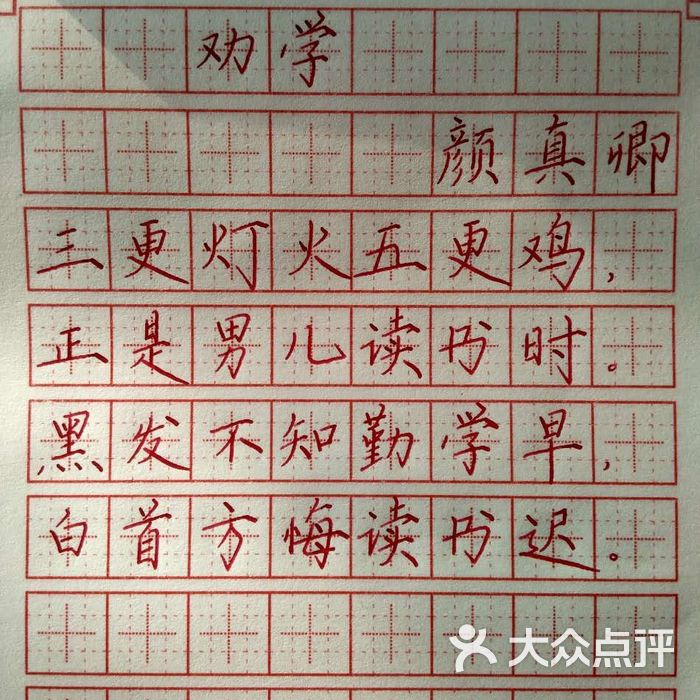 劝学
颜真卿
三更灯火五更鸡,
正是男儿读书时。
黑发不知勤学早,
白首方悔读书迟。
大众点评